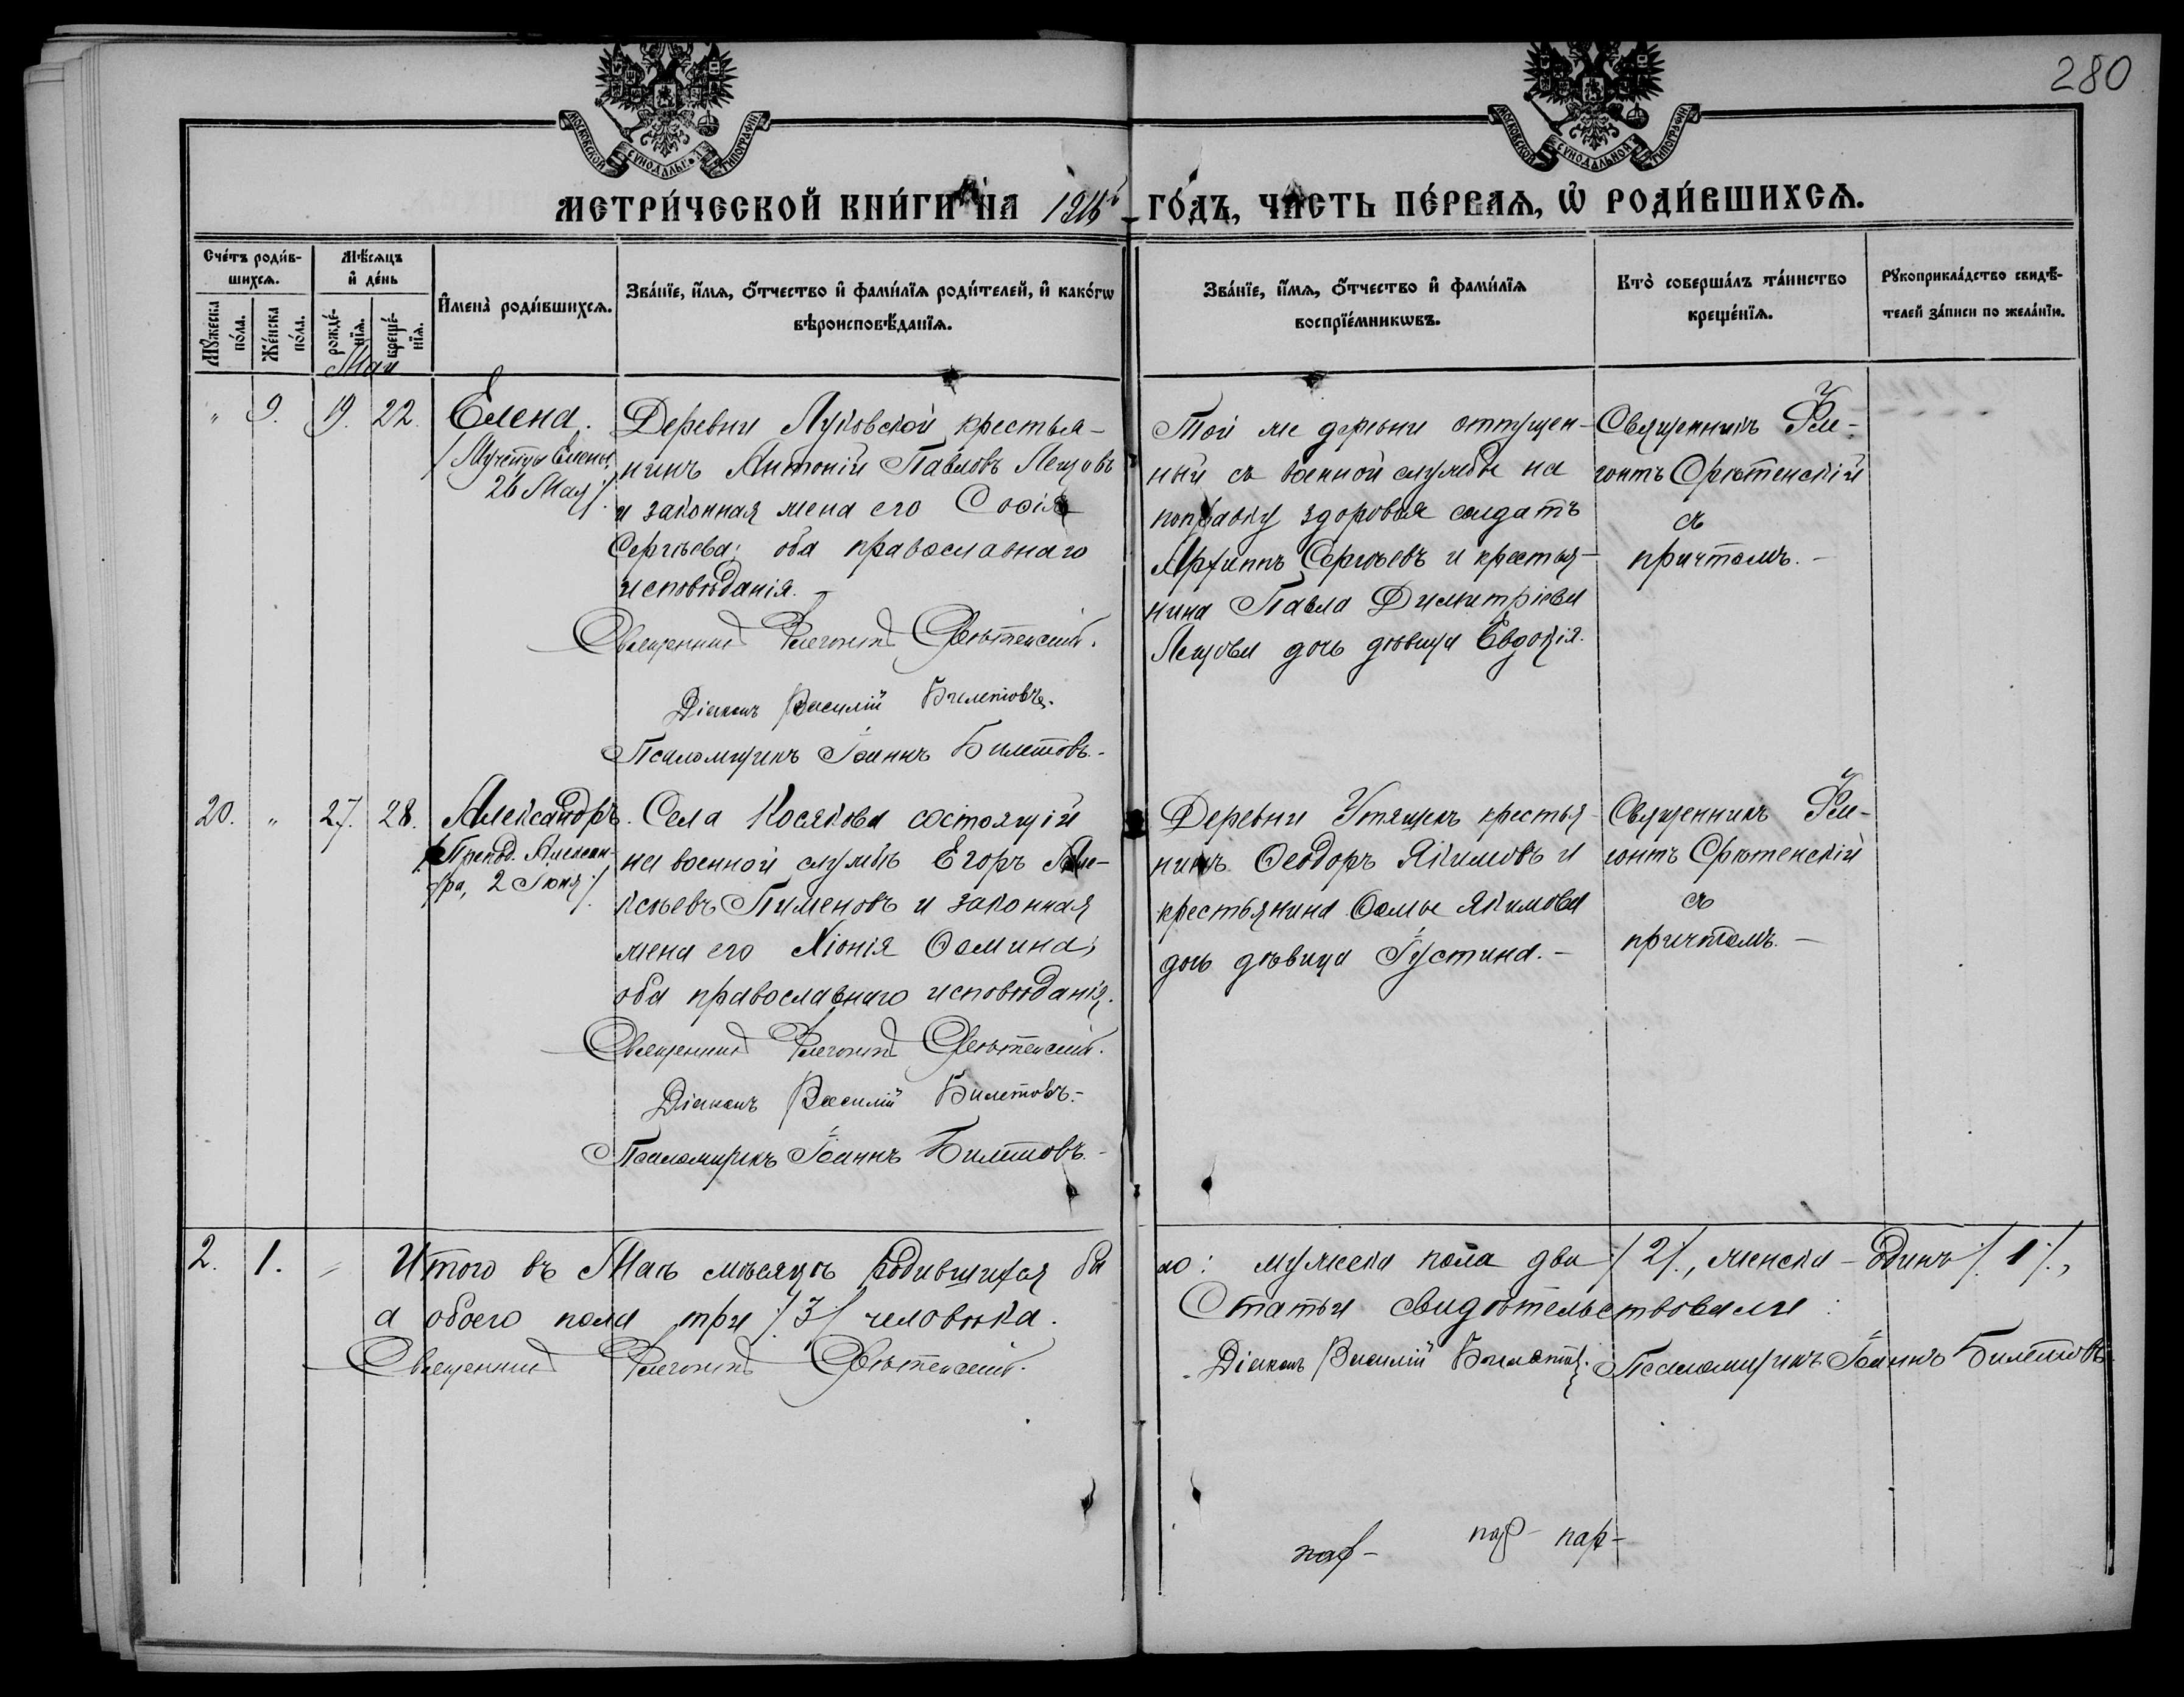 280
МОСКОВСКОЙ СѴНОДАЛЬНОЙ ТИПОГРАФІИ
МОСКОВСКОЙ СѴНОДАЛЬНОЙ ТИПОГРАФІИ
МЕТРИ́ЧЕСКОЙ КНИ́ГИ НА 1916 ГО́ДЪ, ЧА́СТЬ ПЕ́РВАѦ, Ѡ҆ РОДИ́ВШИХСѦ.
Сче́тъ роди́в-
шихсѧ.
Мꙋ́жеска
по́ла.
Же́нска
по́ла.
Мѣ́сѧцъ
и҆ де́нь
рожде́-
нїѧ.
креще́-
нїѧ.
И҆мена̀ роди́вшихсѧ.
Зва́нїе, и҆́мѧ, ѻ҆́тчество и҆ фами́лїѧ роди́телей, и҆ како́гѡ
вѣроисповѣ́данїѧ.
Зва́нїе, и҆́мѧ, ѻ҆́тчество и҆ фами́лїѧ
воспрїе́мникѡвъ.
Кто̀ соверша́лъ та́инство
креще́нїѧ.
Рꙋкоприкла́дство свидѣ́-
телей за́писи по жела́нїю.
Май
" 9. 19. 22. Елена.
/Мучѣницы Елены,
26 Мая/.
Деревни Луковской крестья-
нинъ Антоній Павловъ Лещовъ
и законная жена его Софія
Сергѣева; оба православнаго
исповѣданія.
Священникъ Флегонтъ Срѣтенскій.
Діаконъ Василій Билетовъ.
Псаломщикъ Іоаннъ Билетовъ.-
Той же деревни отпущен-
ный съ военной службы на
поправку здоровья солдатъ
Архиппъ Сергѣевъ и крестья-
нина Павла Димитріева
Лещова дочь дѣвица Евдокія.
Священникъ Фле-
гонтъ Срѣтенскій
съ
причтомъ.-
20. " 27. 28. Александръ.
/Препод. Алексан-
дра, 2 Іюня/.
Села Косякова состоящій
на военной службѣ Егоръ Але-
ксѣевъ Пименовъ и законная
жена его Хіонія Ѳомина;
оба православнаго исповѣданія.
Священникъ Флегонтъ Срѣтенскій.
Діаконъ Василій Билетовъ.-
Псаломщикъ Іоаннъ Билетовъ.-
Деревни Утящекъ крестья-
нинъ Ѳеодоръ Якимовъ и
крестьянина Ѳомы Якимова
дочь дѣвица Іустина.-
Священникъ Фле-
гонтъ Срѣтенскій
съ
причтомъ.-
2. 1. Итого въ Маѣ мѣсяцѣ родившихся бы
ло: мужеска пола два /2/., женска - одинъ /.1/.,
а обоего пола три /3/ человѣка.
Статьи свидѣтельствовали:
Священникъ Флегонтъ Срѣтенскій.
Діаконъ Василій Билетовъ. Псаломщикъ Іоаннъ Билетовъ